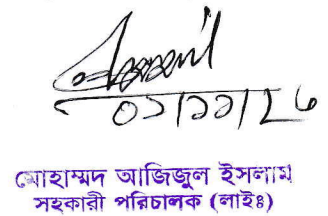 ০১/১১/২৬
মোহাম্মদ আজিজুল ইসলাম
সহকারী পরিচালক (লাইঃ)